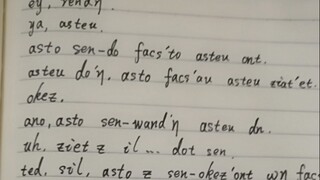 ey, renan.
ya, asteu.
asto sen-do facs'to asteu ont.
asteu do'n, asto facs'au asteu ziat'et.
okez.
ano, asto sen-wand'n asteu dn.
uh, ziet z il... dot sen
ted, s'il, asto z sen-okez'ont wn fac